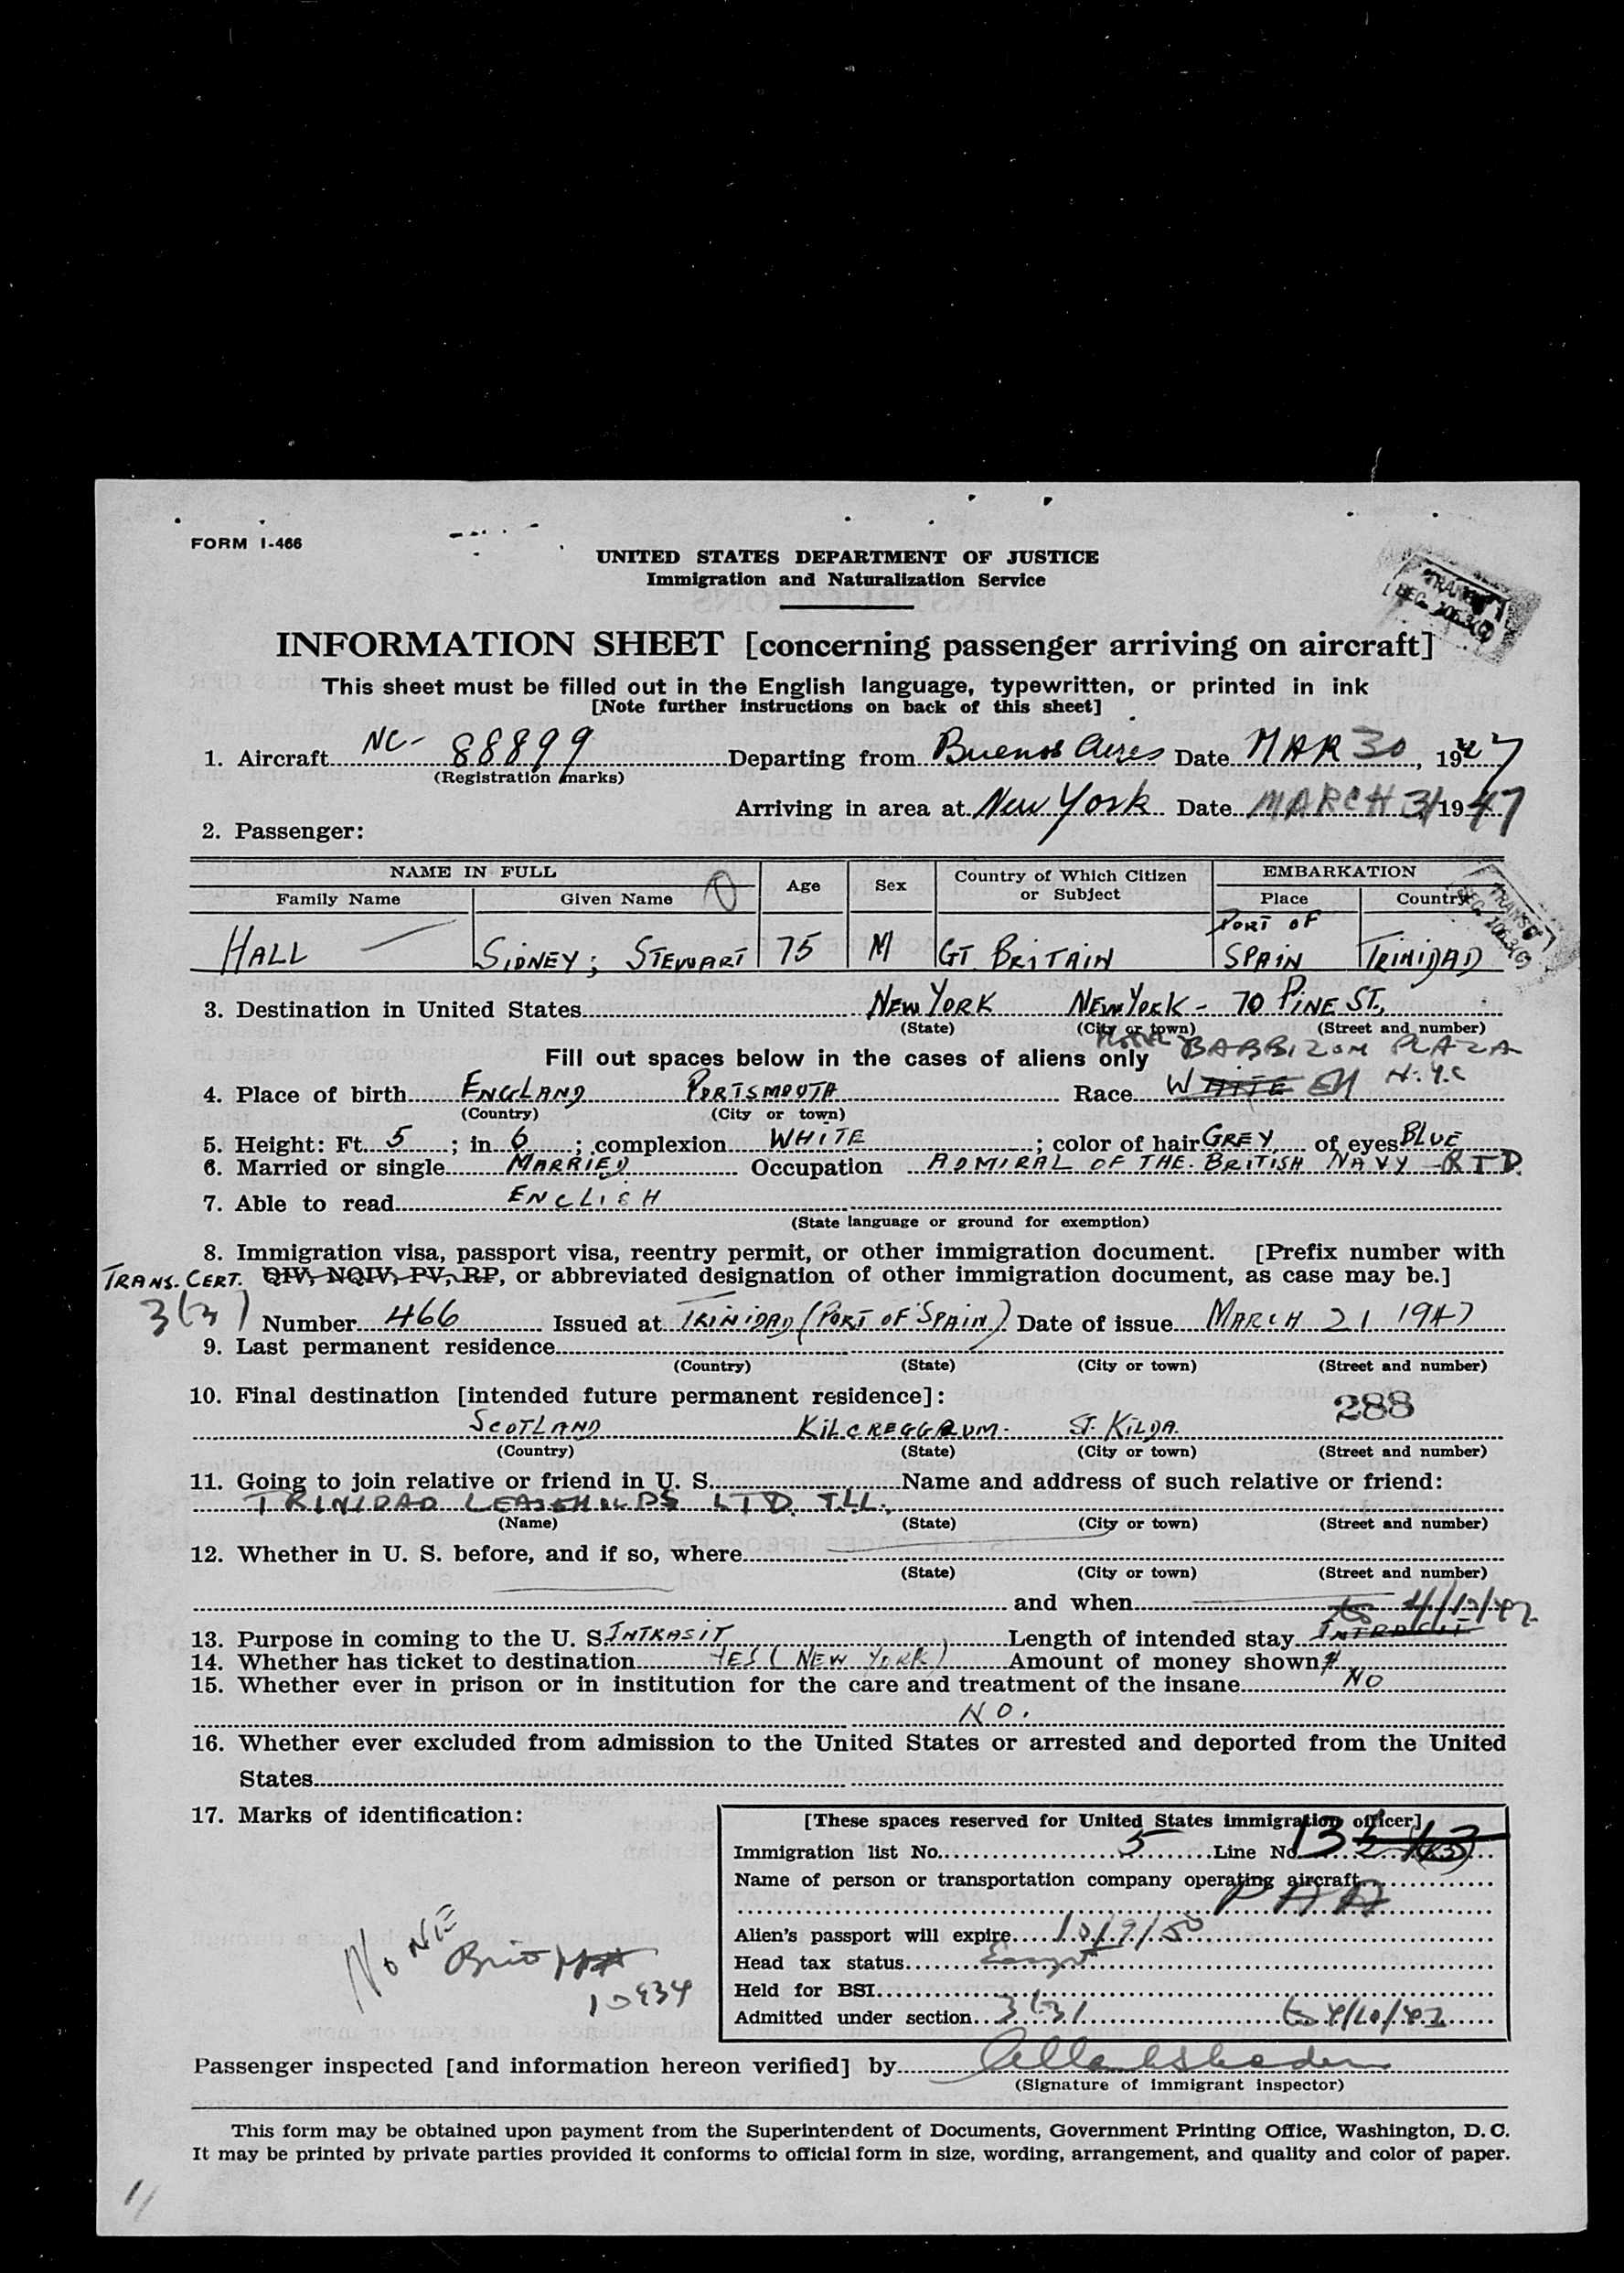 FORM I-466
UNITED STATES DEPARTMENT OF JUSTICE
Immigration and Naturalization Service
TRANSIT
INFORMATION SHEET [concerning passenger arriving on aircraft]
This sheet must be filled out in the English language, typewritten, or printed in ink
[Note further instructions on back of this sheet]
1. Aircraft NC- 88899 Departing from Buenos Aires Date MAR 30, 1947
(Registration marks)
Arriving in area at New York Date MARCH 31 1947
2. Passenger:
NAME IN FULL Age Sex Country of Which Citizen or Subject EMBARKATION
Family Name Given Name Place Country
HALL SIDNEY; STEWART 75 M GT. BRITAIN PORT OF SPAIN TRINIDAD
TRANSIT
3. Destination in United States NEW YORK NEW YORK - 70 PINE ST.,
(State) (City or town) (Street and number)
HOTEL BARBIZON PLAZA
Fill out spaces below in the cases of aliens only
N.Y.C
4. Place of birth ENGLAND PORTSMOUTH Race WHITE
(Country) (City or town)
5. Height: Ft. 5; in. 6; complexion WHITE; color of hair GREY of eyes BLUE
6. Married or single MARRIED Occupation ADMIRAL OF THE BRITISH NAVY - RTD.
7. Able to read ENGLISH
(State language or ground for exemption)
8. Immigration visa, passport visa, reentry permit, or other immigration document. [Prefix number with
TRANS. CERT. QIV, NQIV, PV, RP, or abbreviated designation of other immigration document, as case may be.]
3(3) Number 466 Issued at TRINIDAD (PORT OF SPAIN) Date of issue MARCH 21 1947
9. Last permanent residence
(Country) (State) (City or town) (Street and number)
10. Final destination [intended future permanent residence]:
288
SCOTLAND KILCREGGRUM. ST. KILDA.
(Country) (State) (City or town) (Street and number)
11. Going to join relative or friend in U. S. Name and address of such relative or friend:
TRINIDAD LEASEHOLDS LTD. TLL.
(Name) (State) (City or town) (Street and number)
12. Whether in U. S. before, and if so, where
(State) (City or town) (Street and number)
and when
13. Purpose in coming to the U. S. INTRASIT Length of intended stay
14. Whether has ticket to destination YES (NEW YORK) Amount of money shown $
15. Whether ever in prison or in institution for the care and treatment of the insane NO
NO.
16. Whether ever excluded from admission to the United States or arrested and deported from the United
States
17. Marks of identification:
NONE
10934
[These spaces reserved for United States immigration officer]
Immigration list No. 5 Line No. 13
Name of person or transportation company operating aircraft
PAA
Alien's passport will expire 10/9/50
Head tax status
Held for BSI
Admitted under section
Passenger inspected [and information hereon verified] by
(Signature of immigrant inspector)
This form may be obtained upon payment from the Superintendent of Documents, Government Printing Office, Washington, D. C.
It may be printed by private parties provided it conforms to official form in size, wording, arrangement, and quality and color of paper.